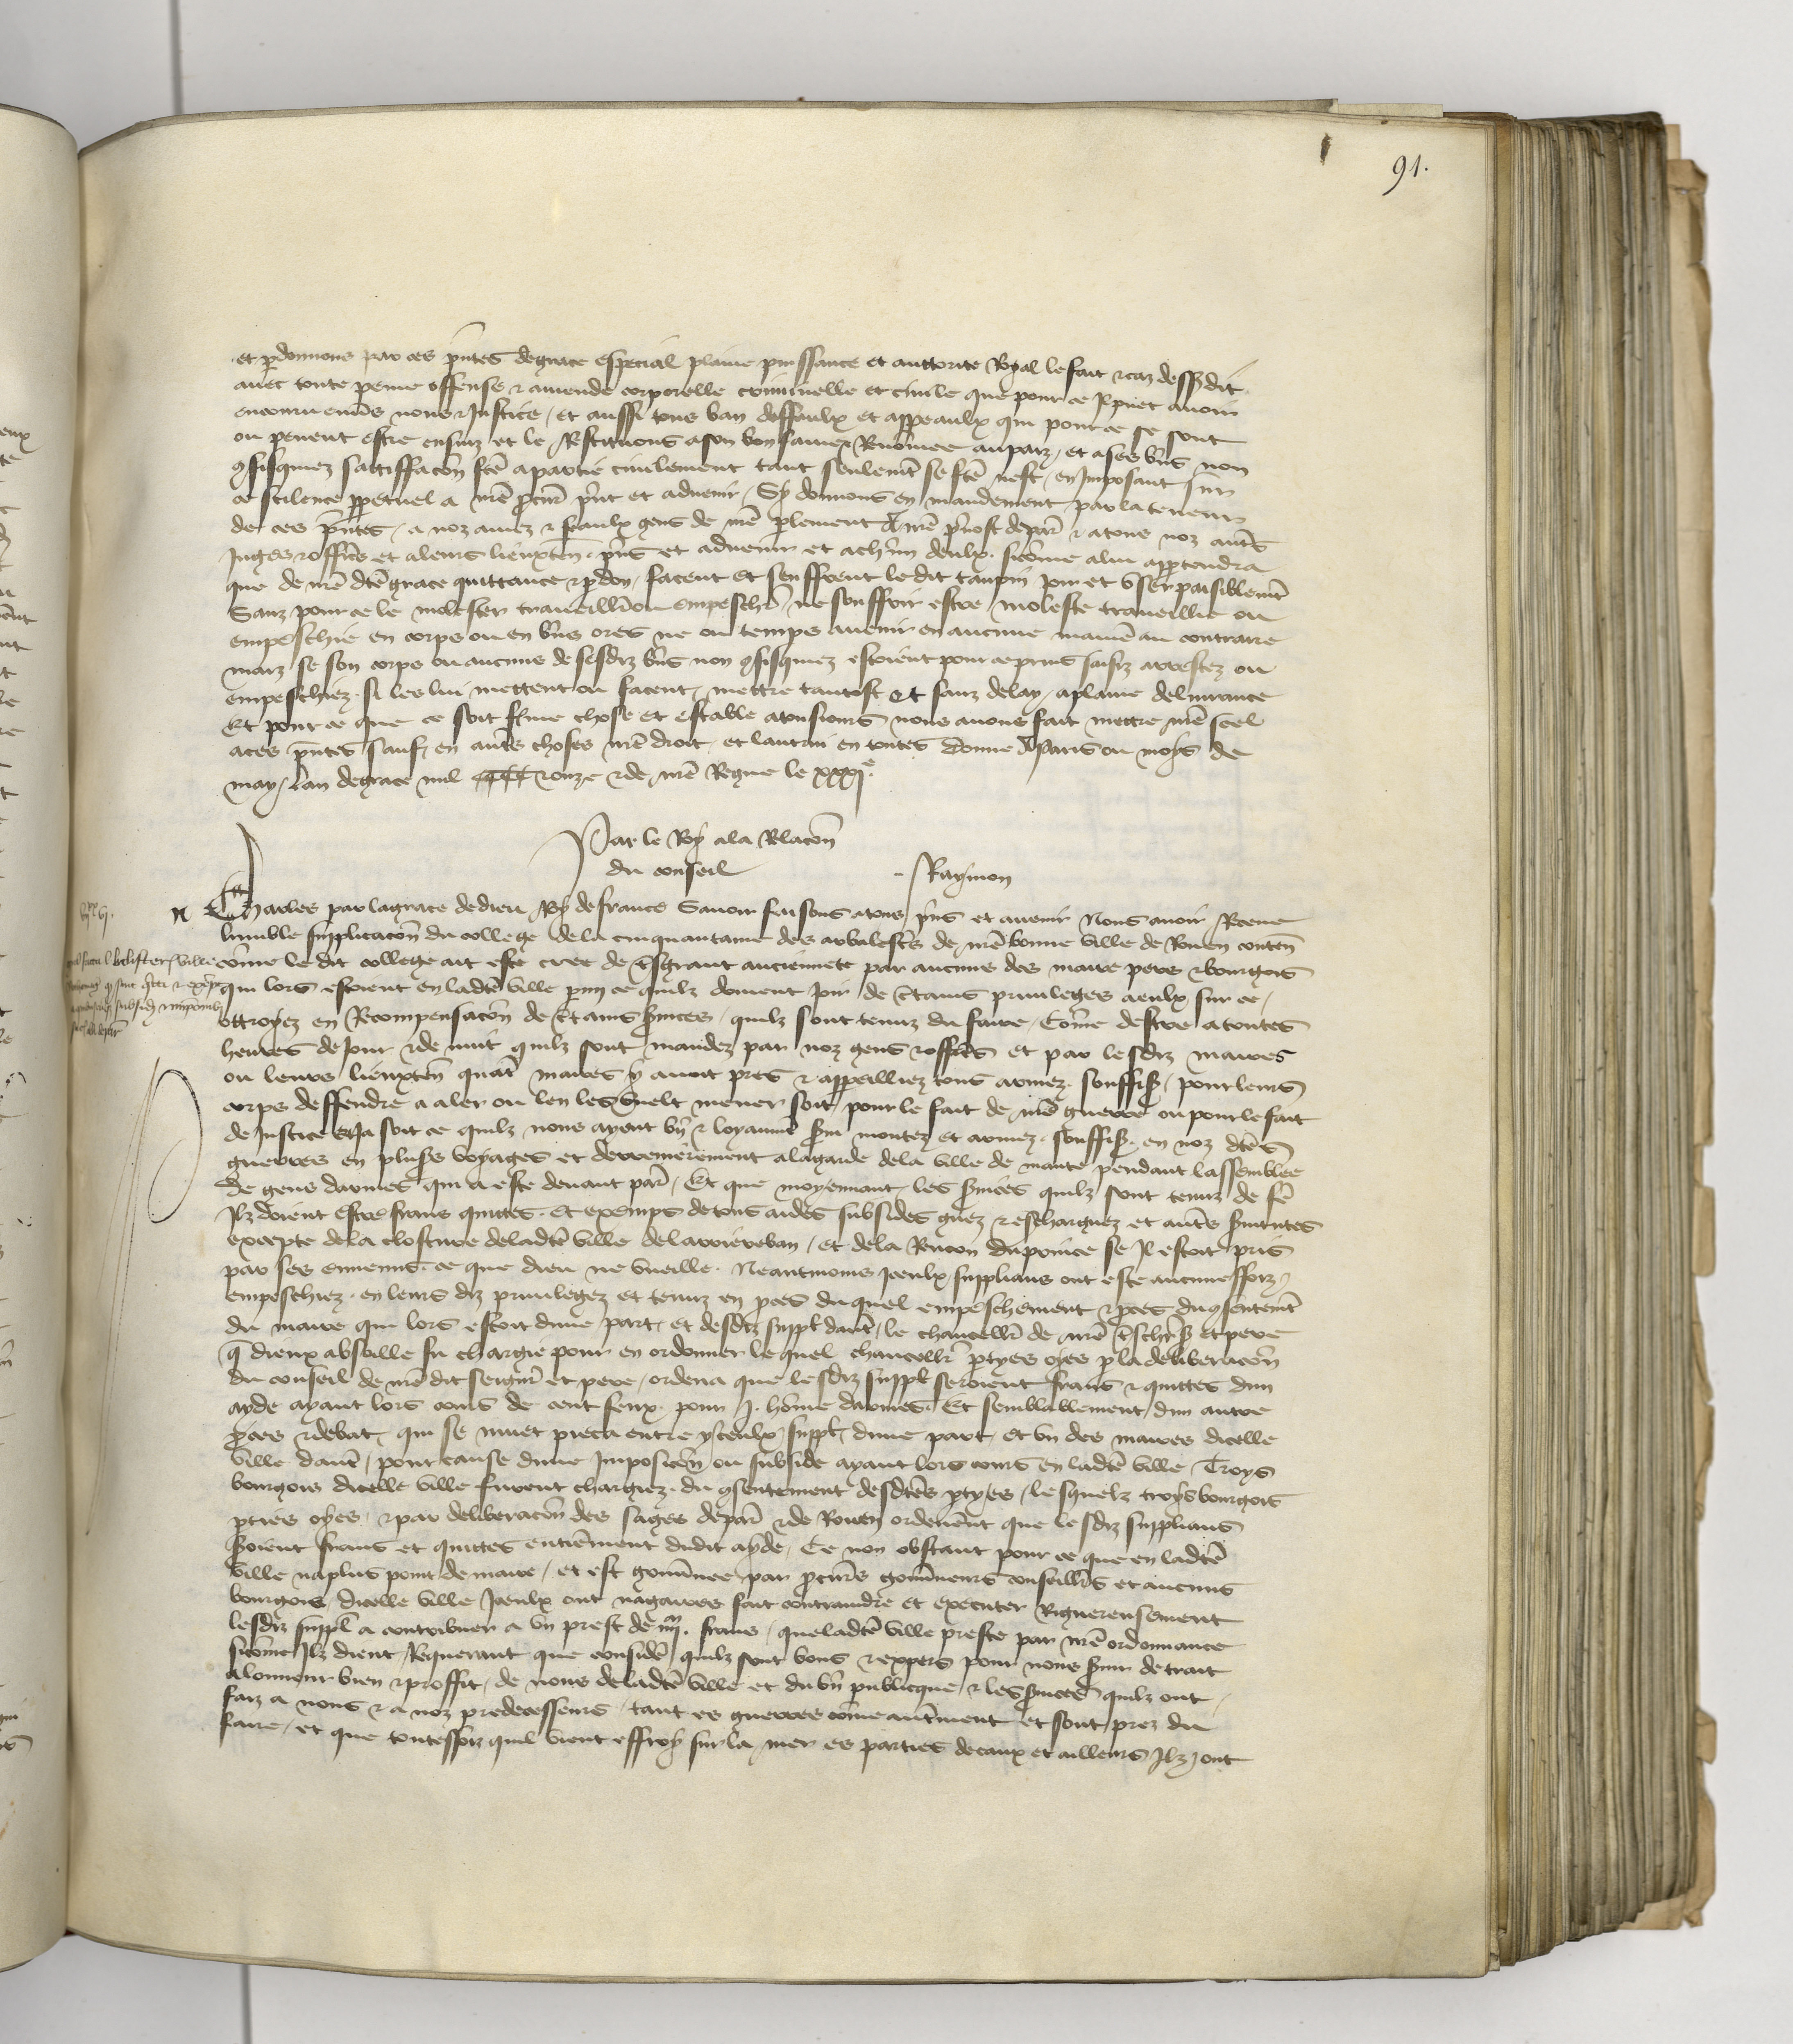 91.
et pdonnons par ces pn̄tes de grace especial plaine puissance et auttorite Royal le fait & cas dessusdit
auec toute peine offense & amende corporelle criminelle et ciuile que pour ce Il puet auoir
encouru enūs nous & Justice / et aussi tous ban deffaulx et appeaulx qui pour ce se sont
ou peuent estre ensuiz et le Restituons a son bon fame & Renōmee au pays / et a ses bn̄s non
9fisquez satiffacōn fcē a partie ciuilement tant seulemt̄ se fcē nest / en Imposant sur
ce scilence ppetuel a nr̄e pcur̄ pn̄t et aduenir / Sy donnons en mandement par la teneur
de ces pn̄tes / a noz amez & feaulx gens de nr̄e plement A nr̄e pr̄uost de par̄ & a tous noz autr̄s
Juges & officr̄s et a leurs lieuxten̄ . pn̄s et aduenir et a chūn deulx . sicōme a lui appartendra
que de nr̄e dc̄e grace quittance & pdon / facent et seuffrent le dit taupin Joir et vser paisiblemt̄
Sanz pour ce le molester trauaillier ou empeschr̄ / ne souffrir estre moleste trauaillie ou
empeschie en corps ou en bn̄s ores ne ou temps auenir en aucune manie᷑ au contraire
maiz se son corps ou aucuns de sesdiz bn̄s non 9fisquez estoient pour ce prins saisiz arrestez ou
empeschiez . si les lui mettent ou facent / mettre tantost et sanz delay / a plaine deliurance
Et pour ce que ce soit ferme chose et estable a tousiours nous auons fait mettre nr̄e seel
a ces pn̄tes sauf / en autr̄s choses nr̄e droit / et lautrui en toutes donne A Paris ou moys de
may / Lan de grace mil CCCC & onze & de nr̄e Regne le xxxje.
Par le Roy a la Relacōn
du conseil Raymon
Charles par la grace de dieu Roy de france Sauoir faisons a tous pn̄s et auenir Nous auoir Receue
lumble supplicacōn du college de la cinquantaine des arbalestr̄s de nr̄e bonne ville de Rouen conten̄
cōme le dit college ait este cree de tsgrant anciennete par aucuns des maire pers & bourgois
qui lors estoient en ladc̄e ville pmy ce quilz doiuent Joir de ctains priuileges a eulx sur ce /
ottroyez en Recompensacōn de ctains suices / quilz sont tenuz du faire / Cōme destre a toutes
heures de Jour & de nuit quilz sont mandez par noz gens & officr̄s et par lesdiz maires
ou leurs lieuxten̄ quat̄ maires y auoit prestz & appeilliez tous armez . souffis / pour leurs
corps deffendre a aler ou len les vuelt mener soit / pour le fait de nr̄e guerre ou pour le fait
de Justice et Ja soit ce quilz nous ayent bn̄ & loyaumt̄ sui montez et armez . souffis . en noz dc̄es
guerres en plus̄s voyages et derrenierement a la garde de la ville de mante pendant lassemblee
de gens darmes qui a este deuant par̄ / Et que moyennant / les suices quilz sont tenuz de fe᷑
Ilz doient estre frans quittes . et exemps de tous aides subsides guez & eschargaez et autr̄s suitutes
excepte de la closture de ladc̄e ville de larriereban / et de la Rencon du prince se Il estoit pris
par ses ennemis . ce que dieu ne vueille . Neantmoins Iceulx supplians ont este aucunesfoiz
empeschiez . en leurs diz priuileges et tenuz en pces duquel empeschement & pces du 9sentemt̄
du maire qui lors estoit dune part / et desdiz suppl̄ daut̄ / le chancellr̄ de nr̄e ts̄chr̄ sr̄ et pere
q dieux absoille fu chargie pour en ordonner lequel chancellr̄ ptyes oyes p la deliberacōn
du conseil de nr̄e dit seigr̄ et pere / ordena que lesdiz suppl̄ seroient frans & quittes dun
ayde ayant lors cours de cent feux . pour j. hōme darmes . Et semblablement / dun autre
pces & debat / qui se muet pieca entre yceulx / suppl̄ / dune part / et vn des maires dicelle
ville daut̄ / pour cause dune Imposicōn ou subside ayant lors cours en ladc̄e ville / Troys
bourgois dicelle ville furent chargiez . du 9sentement desdc̄es ptyes / lesquelz troys bourgois
pties oyes / & par deliberacōn des sages de par̄ & de Rouen ordenerēnt que lesdiz supplians
soient frans et quittes entierement dudit ayde / Ce non obstant pour ce que en ladc̄e
ville na plus point de maire / et est gouu̇nee par pcurr̄s gouu̇neurs conseillr̄s et aucuns
bourgois dicelle ville Iceulx ont nagaires fait contraindre et executer Rigeureusement
lesdiz suppl̄ a contribuer a vn prest de iiijm. frans / que ladc̄e ville preste par nr̄e ordonnance
sicōme Ilz dient / Requerant que considr̄e quilz sont bons & expers pour nous suir de trait
a lonneur bien & proffit / de nous de ladc̄e ville et du bn̄ publicque / & les suices quilz ont /
faiz a nous & a noz predecesseurs / tant es guerres cōme autrement et sont prez du
faire / et que toutesfoiz quil vient effroy sur la mer es parties de caux et ailleurs Ilz ont